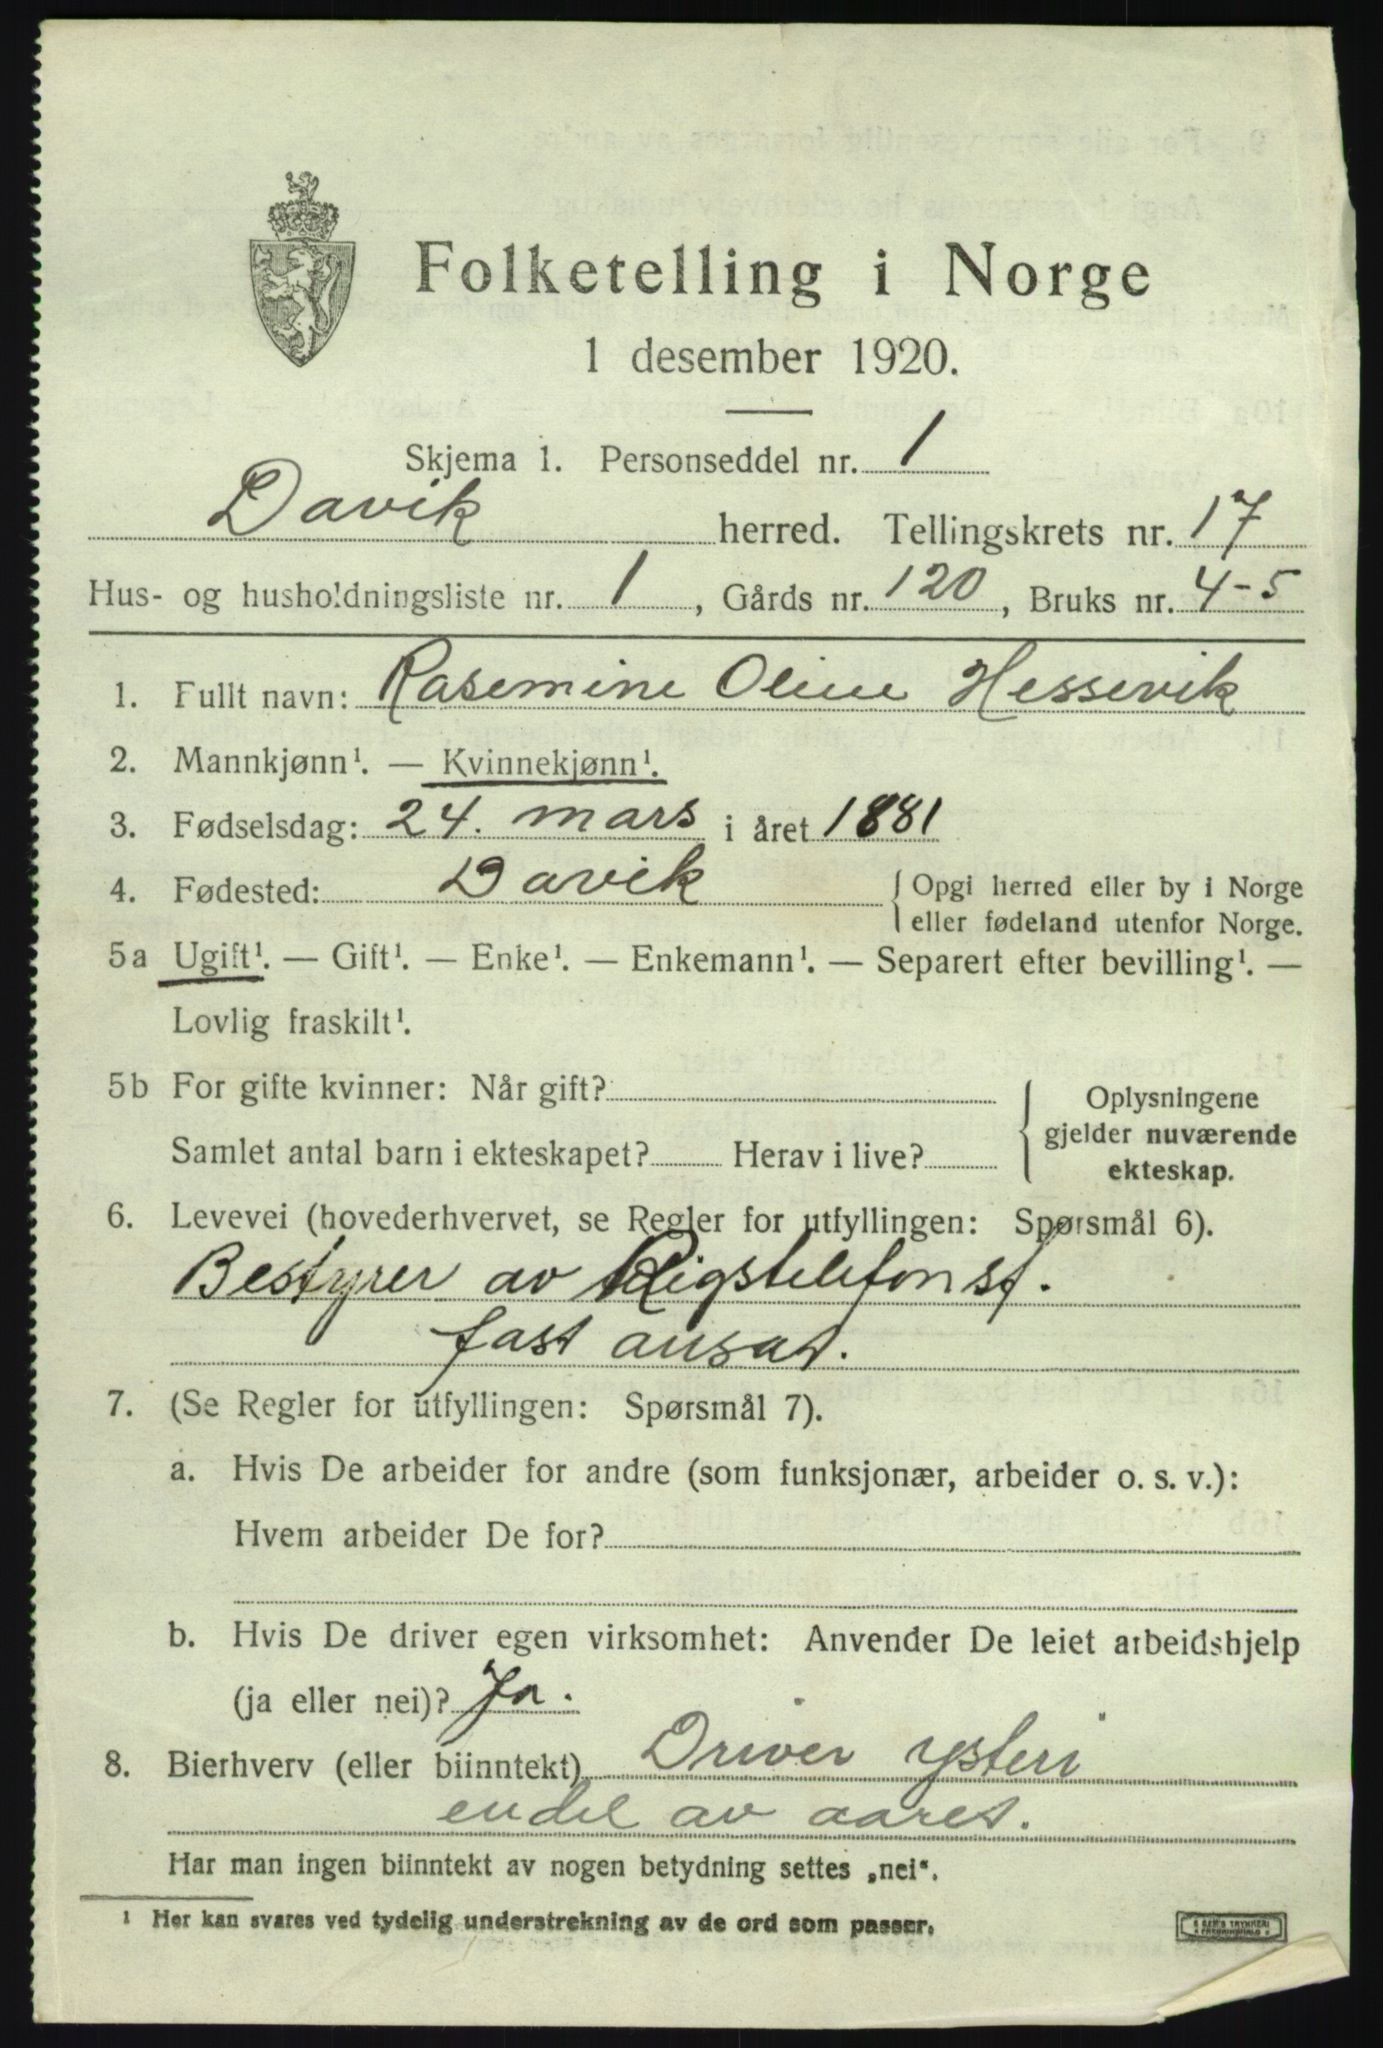 Folketelling i Norge
1 desember 1920.
Skjema 1. Personseddel nr. 1
Davik herred. Tellingskrets nr. 17
Hus- og husholdningsliste nr. 1, Gårds nr. 120, Bruks nr. 4-5
1. Fullt navn: Rasemine Oline Hessevik
2. Mannkjønn¹. — Kvinnekjønn¹.
3. Fødselsdag: 24. mars i året 1881
4. Fødested: Davik { Opgi herred eller by i Norge
eller fødeland utenfor Norge.
5a Ugift¹. — Gift¹. — Enke¹. — Enkemann¹. — Separert efter bevilling¹. —
Lovlig fraskilt¹.
5b For gifte kvinner: Når gift?
Samlet antal barn i ekteskapet? Herav i live?
{ Oplysningene
gjelder nuværende
ekteskap.
6. Levevei (hovederhvervet, se Regler for utfyllingen: Spørsmål 6).
Bestyrer av Rigstelefonst.
fast ansat.
7. (Se Regler for utfyllingen: Spørsmål 7).
a. Hvis De arbeider for andre (som funksjonær, arbeider o. s. v.):
Hvem arbeider De for?
b. Hvis De driver egen virksomhet: Anvender De leiet arbeidshjelp
(ja eller nei)? Ja.
8. Bierhverv (eller biinntekt) Driver ysteri
endel av aaret.
Har man ingen biinntekt av nogen betydning settes „nei“.
¹ Her kan svares ved tydelig understrekning av de ord som passer.